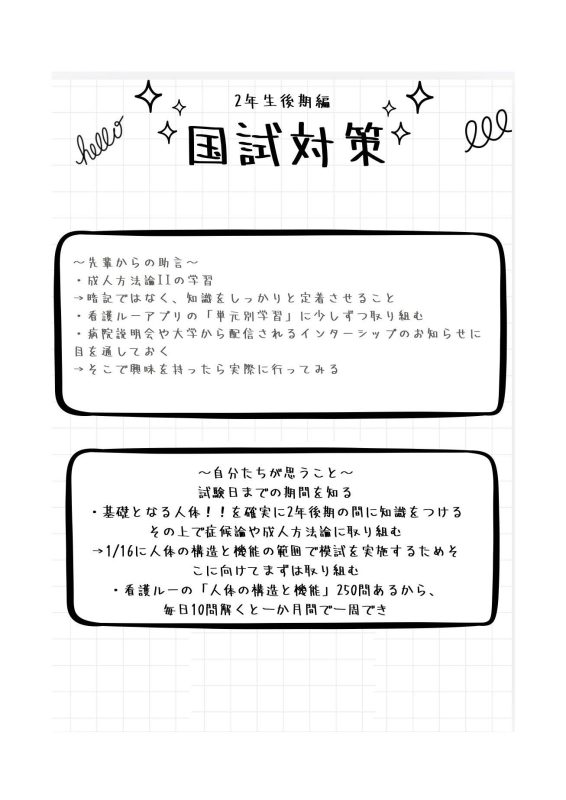 2年生後期編
hello
国試対策
～先輩からの助言～
・成人方法論IIの学習
→暗記ではなく、知識をしっかりと定着させること
・看護ルーアプリの「単元別学習」に少しずつ取り組む
・病院説明会や大学から配信されるインターシップのお知らせに
目を通しておく
→そこで興味を持ったら実際に行ってみる
～自分たちが思うこと～
試験日までの期間を知る
・基礎となる人体！！を確実に2年後期の間に知識をつける
その上で症候論や成人方法論に取り組む
→1/16に人体の構造と機能の範囲で模試を実施するためそ
こに向けてまずは取り組む
・看護ルーの「人体の構造と機能」250問あるから、
毎日10問解くと一か月間で一周でき